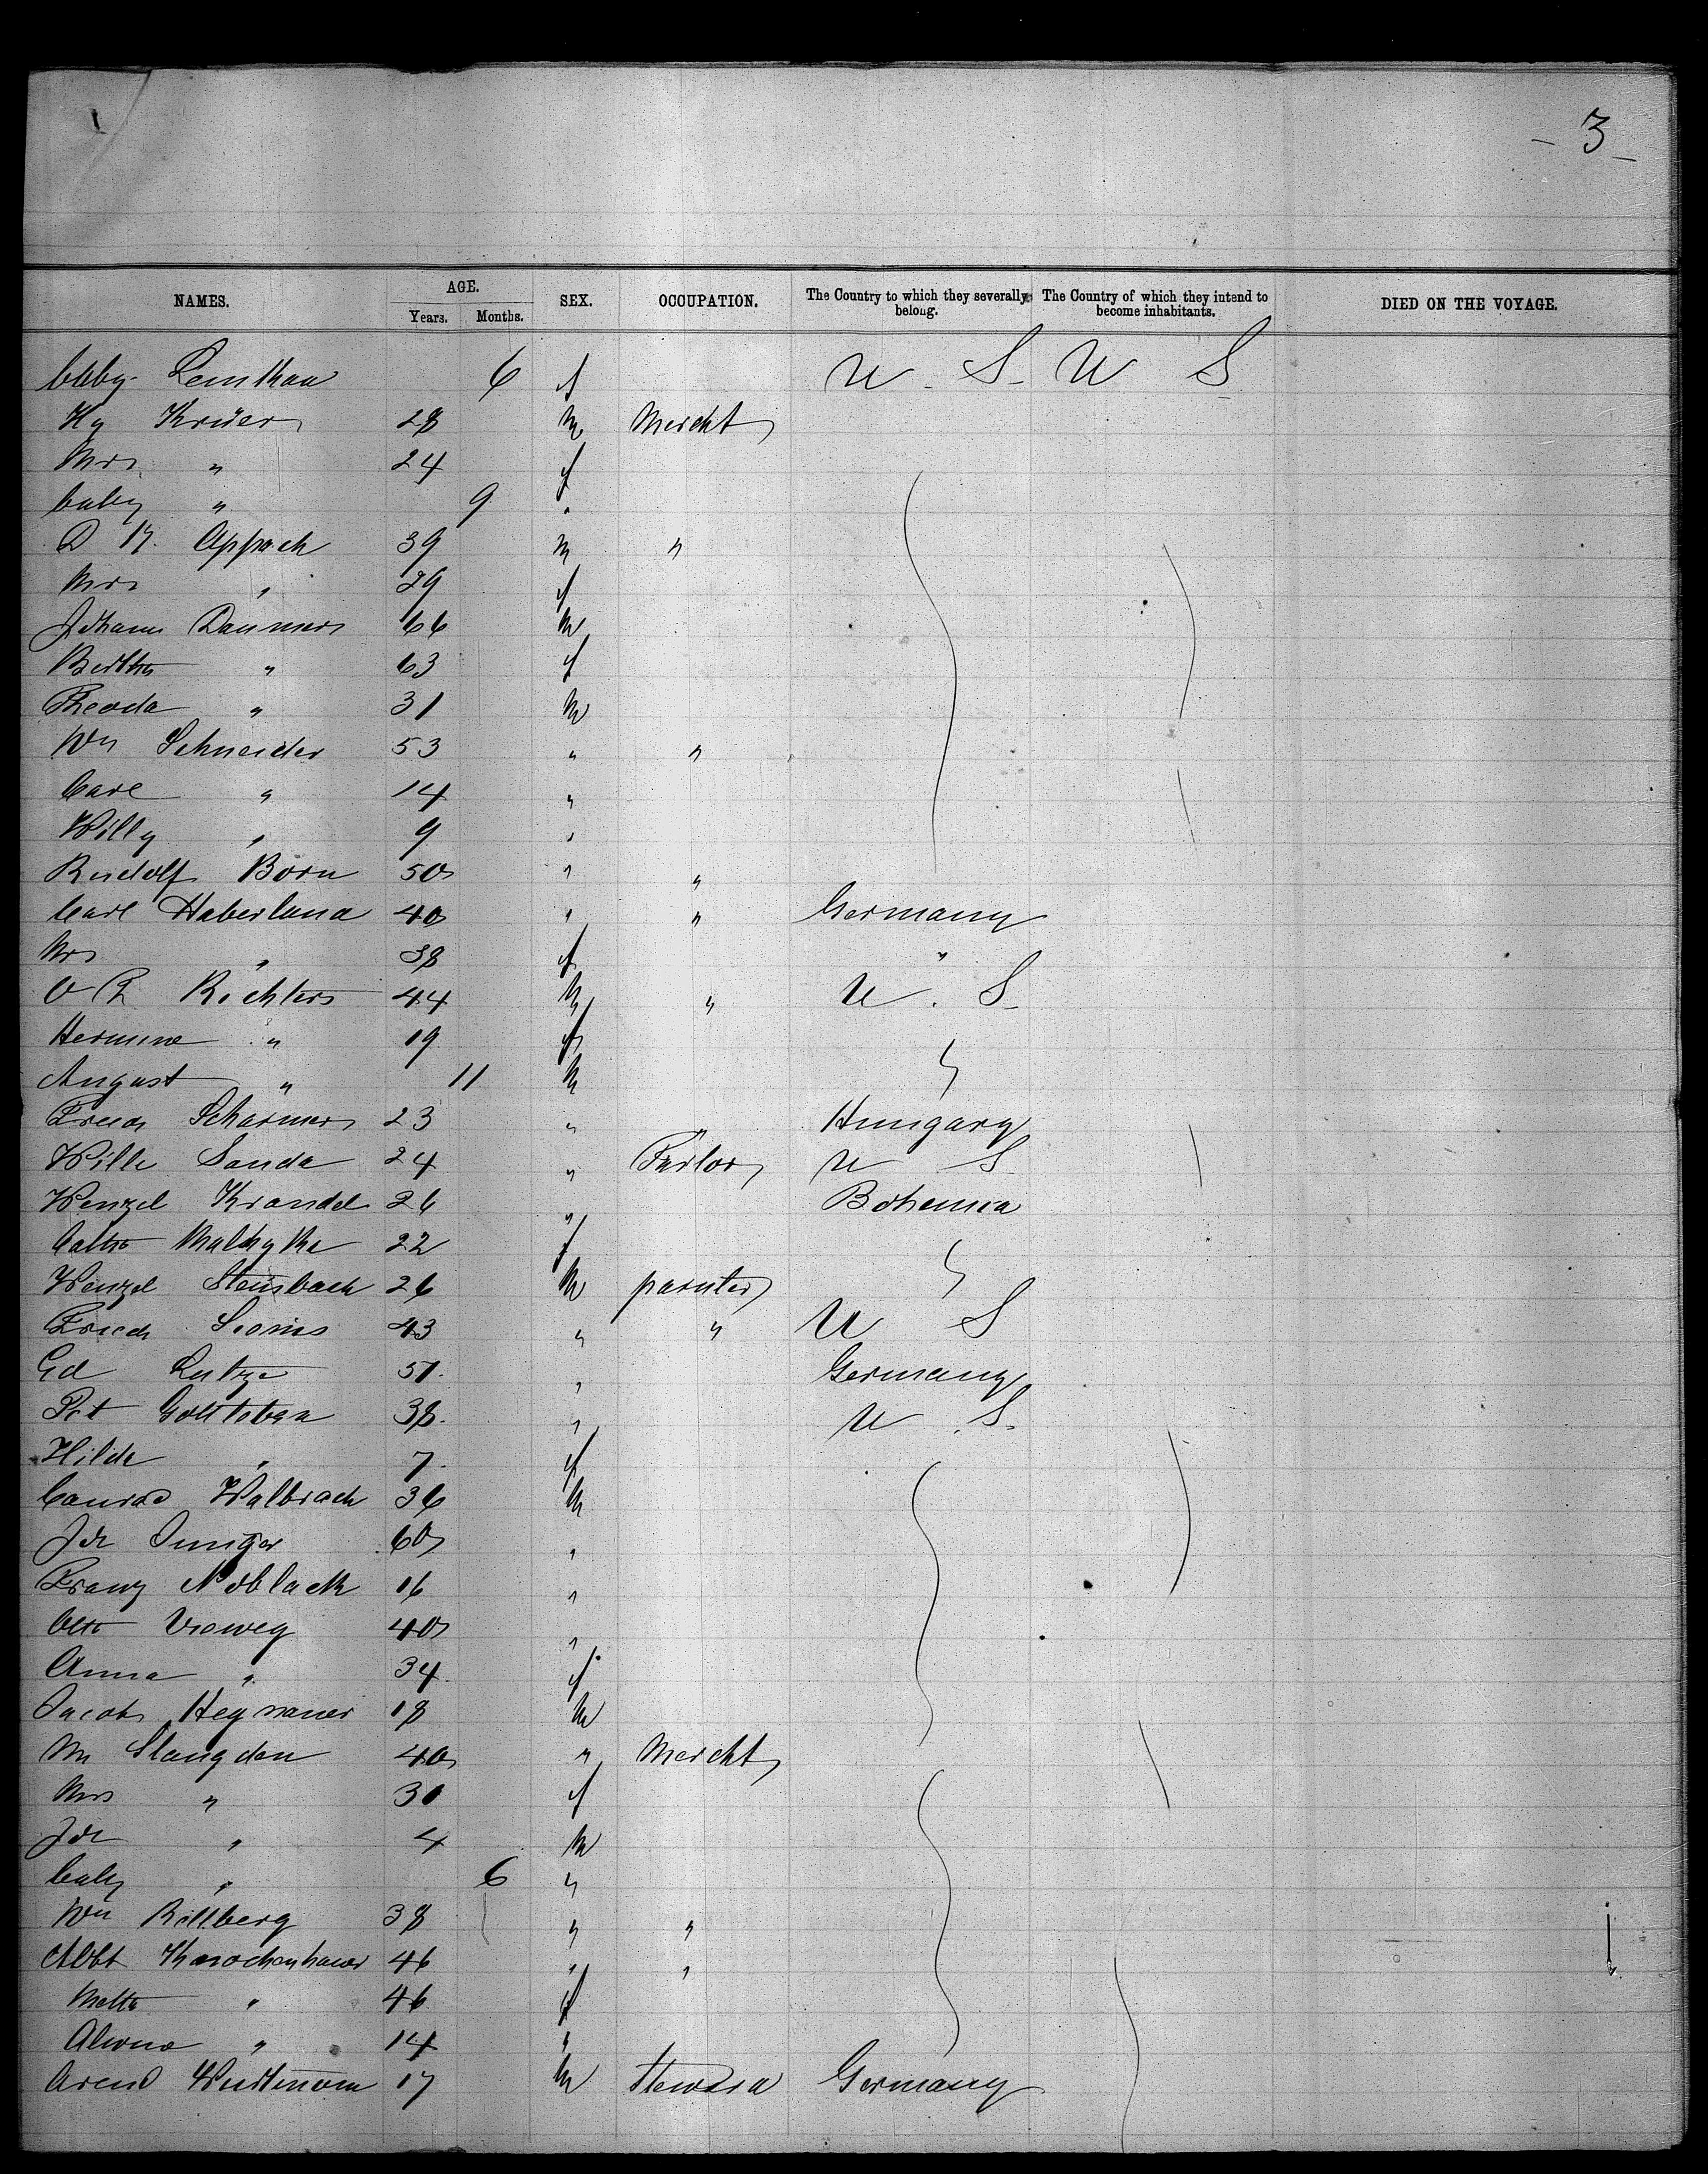 - 3 -
NAMES. AGE. SEX. OCCUPATION. The Country to which they severally belong. The Country of which they intend to become inhabitants. DIED ON THE VOYAGE.
Years. Months.
baby 6 f U. S. U S
Hy Krüer 28 m Mercht
Mrs " 24 f
baby " 9 "
D H. Appach 39 m "
Mrs " 29 f
Johann 66 m
Bertha " 63 f
Theoda " 31 m
Wm Schneider 53 " "
Carl " 14 "
Willy " 9 "
Rudolf Born 50 " "
Carl Haberland 40 " " Germany
Mrs " 38 f "
Richters 44 m " U. S.
Hermine " 19 f
August " 11 m
Friedr 23 " Hungary
Wille Sanda 24 " U S
Wenzel Krandel 26 " Bohemia
22 f
Wenzel Steinbach 26 m painter
Friedr 43 " " U S
Ed Lutze 51 " Germany
Pet 38 " U. S.
Hilda " 7 f
Conrad Walbrach 36 m
Joh Junger 60 "
Franz Noblack 16 "
Otto Vieweg 40 "
Anna " 34 f
Jacob 18 m
M Slangden 40 " Mercht
Mrs " 30 f
Joh " 4 m
baby " 6 "
Wm Rillberg 38 " "
Albt Knochenhauer 46 " "
Metta " 46 f
Alwine " 14 "
Arend 17 m Steward Germany